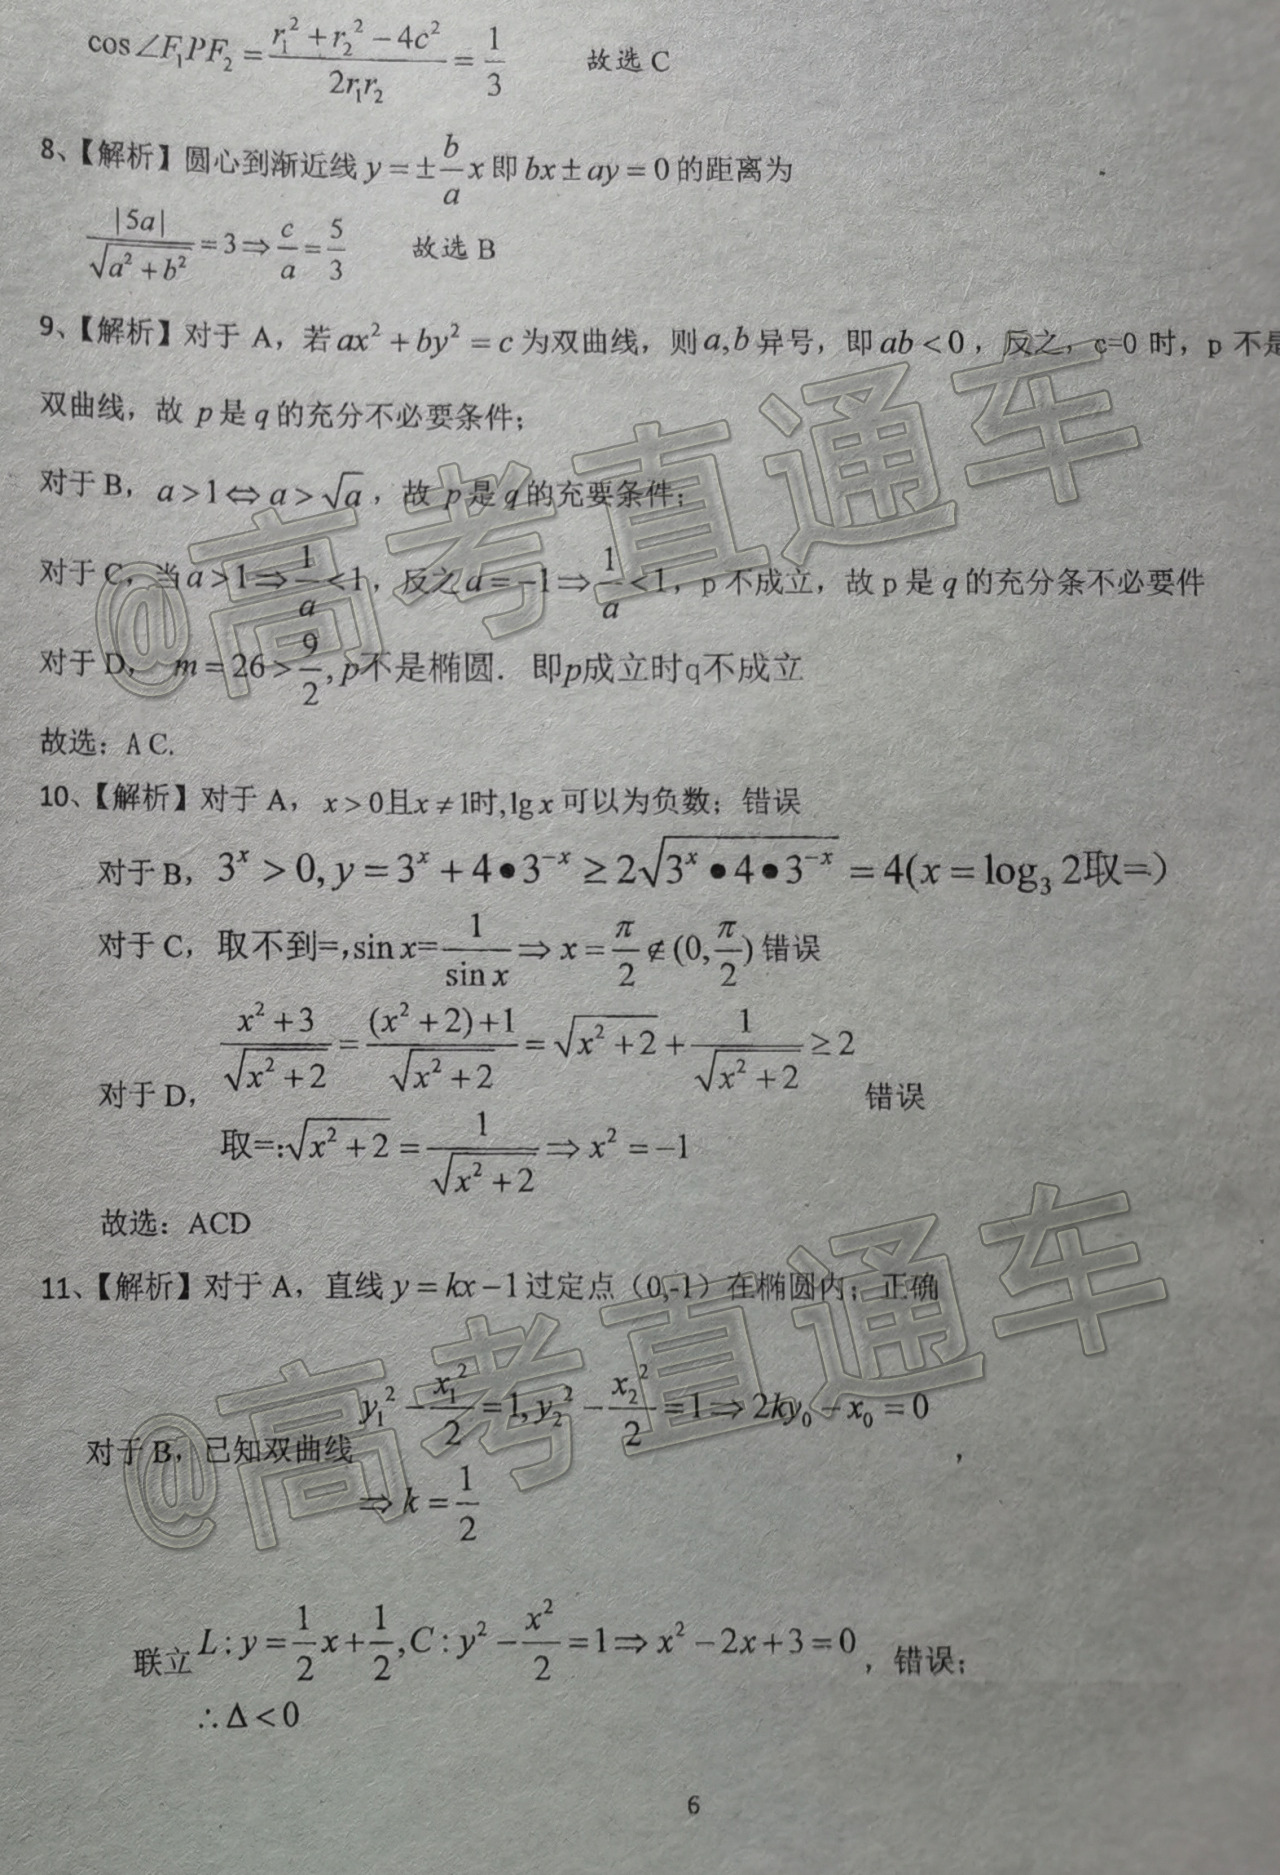 cos∠F₁PF₂ = (r₁² + r₂² − 4c²)/(2r₁r₂) = 1/3　故选 C
8、【解析】圆心到渐近线 y = ±(b/a)x 即 bx ± ay = 0 的距离为
|5a|/√(a² + b²) = 3 ⇒ c/a = 5/3　故选 B
9、【解析】对于 A，若 ax² + by² = c 为双曲线，则 a,b 异号，即 ab < 0，反之，c=0 时，p 不是
双曲线，故 p 是 q 的充分不必要条件；
对于 B，a > 1 ⇔ a > √a，故 p 是 q 的充要条件；
对于 C，当 a > 1 ⇒ 1/a < 1，反之 a = −1 ⇒ 1/a < 1，p 不成立，故 p 是 q 的充分条不必要件
对于 D，m = 26 > 9/2, p不是椭圆．即p成立时q不成立
故选：A C.
10、【解析】对于 A，x > 0且x ≠ 1时, lg x 可以为负数；错误
对于 B，3ˣ > 0, y = 3ˣ + 4•3⁻ˣ ≥ 2√(3ˣ•4•3⁻ˣ) = 4(x = log₃ 2取=)
对于 C，取不到=, sin x= 1/sin x ⇒ x = π/2 ∉ (0, π/2) 错误
对于 D，(x² + 3)/√(x² + 2) = ((x² + 2) + 1)/√(x² + 2) = √(x² + 2) + 1/√(x² + 2) ≥ 2　错误
取=: √(x² + 2) = 1/√(x² + 2) ⇒ x² = −1
故选：ACD
11、【解析】对于 A，直线 y = kx − 1 过定点（0,-1）在椭圆内；正确
对于 B，已知双曲线 y₁² − x₁²/2 = 1, y₂² − x₂²/2 = 1 ⇒ 2ky₀ − x₀ = 0，
⇒ k = 1/2
联立 L : y = (1/2)x + 1/2, C : y² − x²/2 = 1 ⇒ x² − 2x + 3 = 0，错误；
∴ Δ < 0
6
@高考直通车
@高考直通车